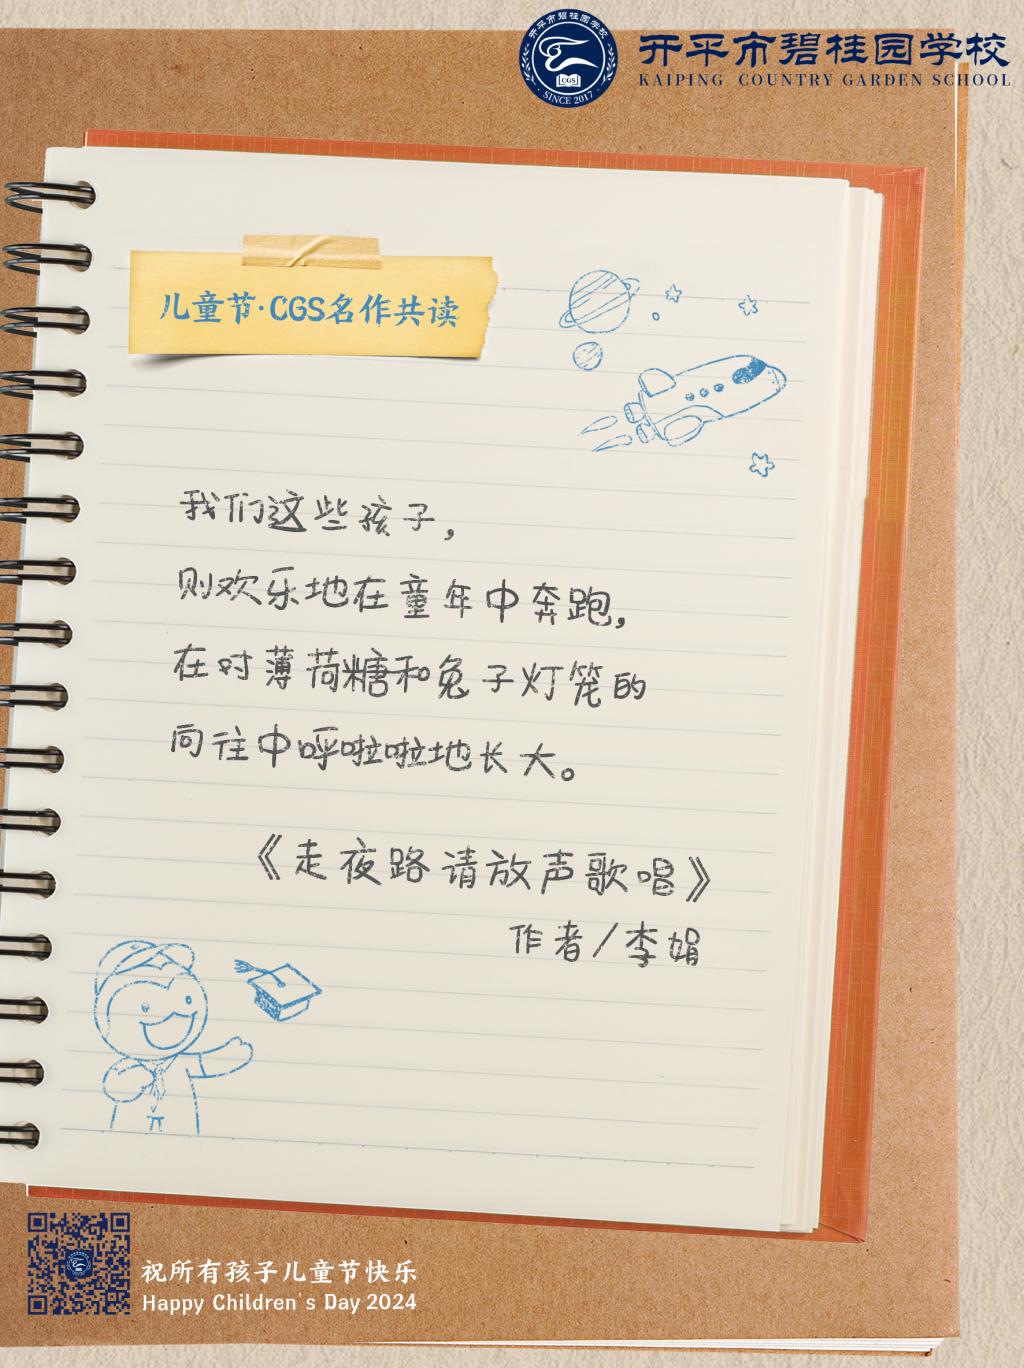 开平市碧桂园学校
CGS
SINCE 2017
开平市碧桂园学校
KAIPING COUNTRY GARDEN SCHOOL
儿童节·CGS名作共读
我们这些孩子,
则欢乐地在童年中奔跑,
在对薄荷糖和兔子灯笼的
向往中呼啦啦地长大。
《走夜路请放声歌唱》
作者/李娟
祝所有孩子儿童节快乐
Happy Children's Day 2024